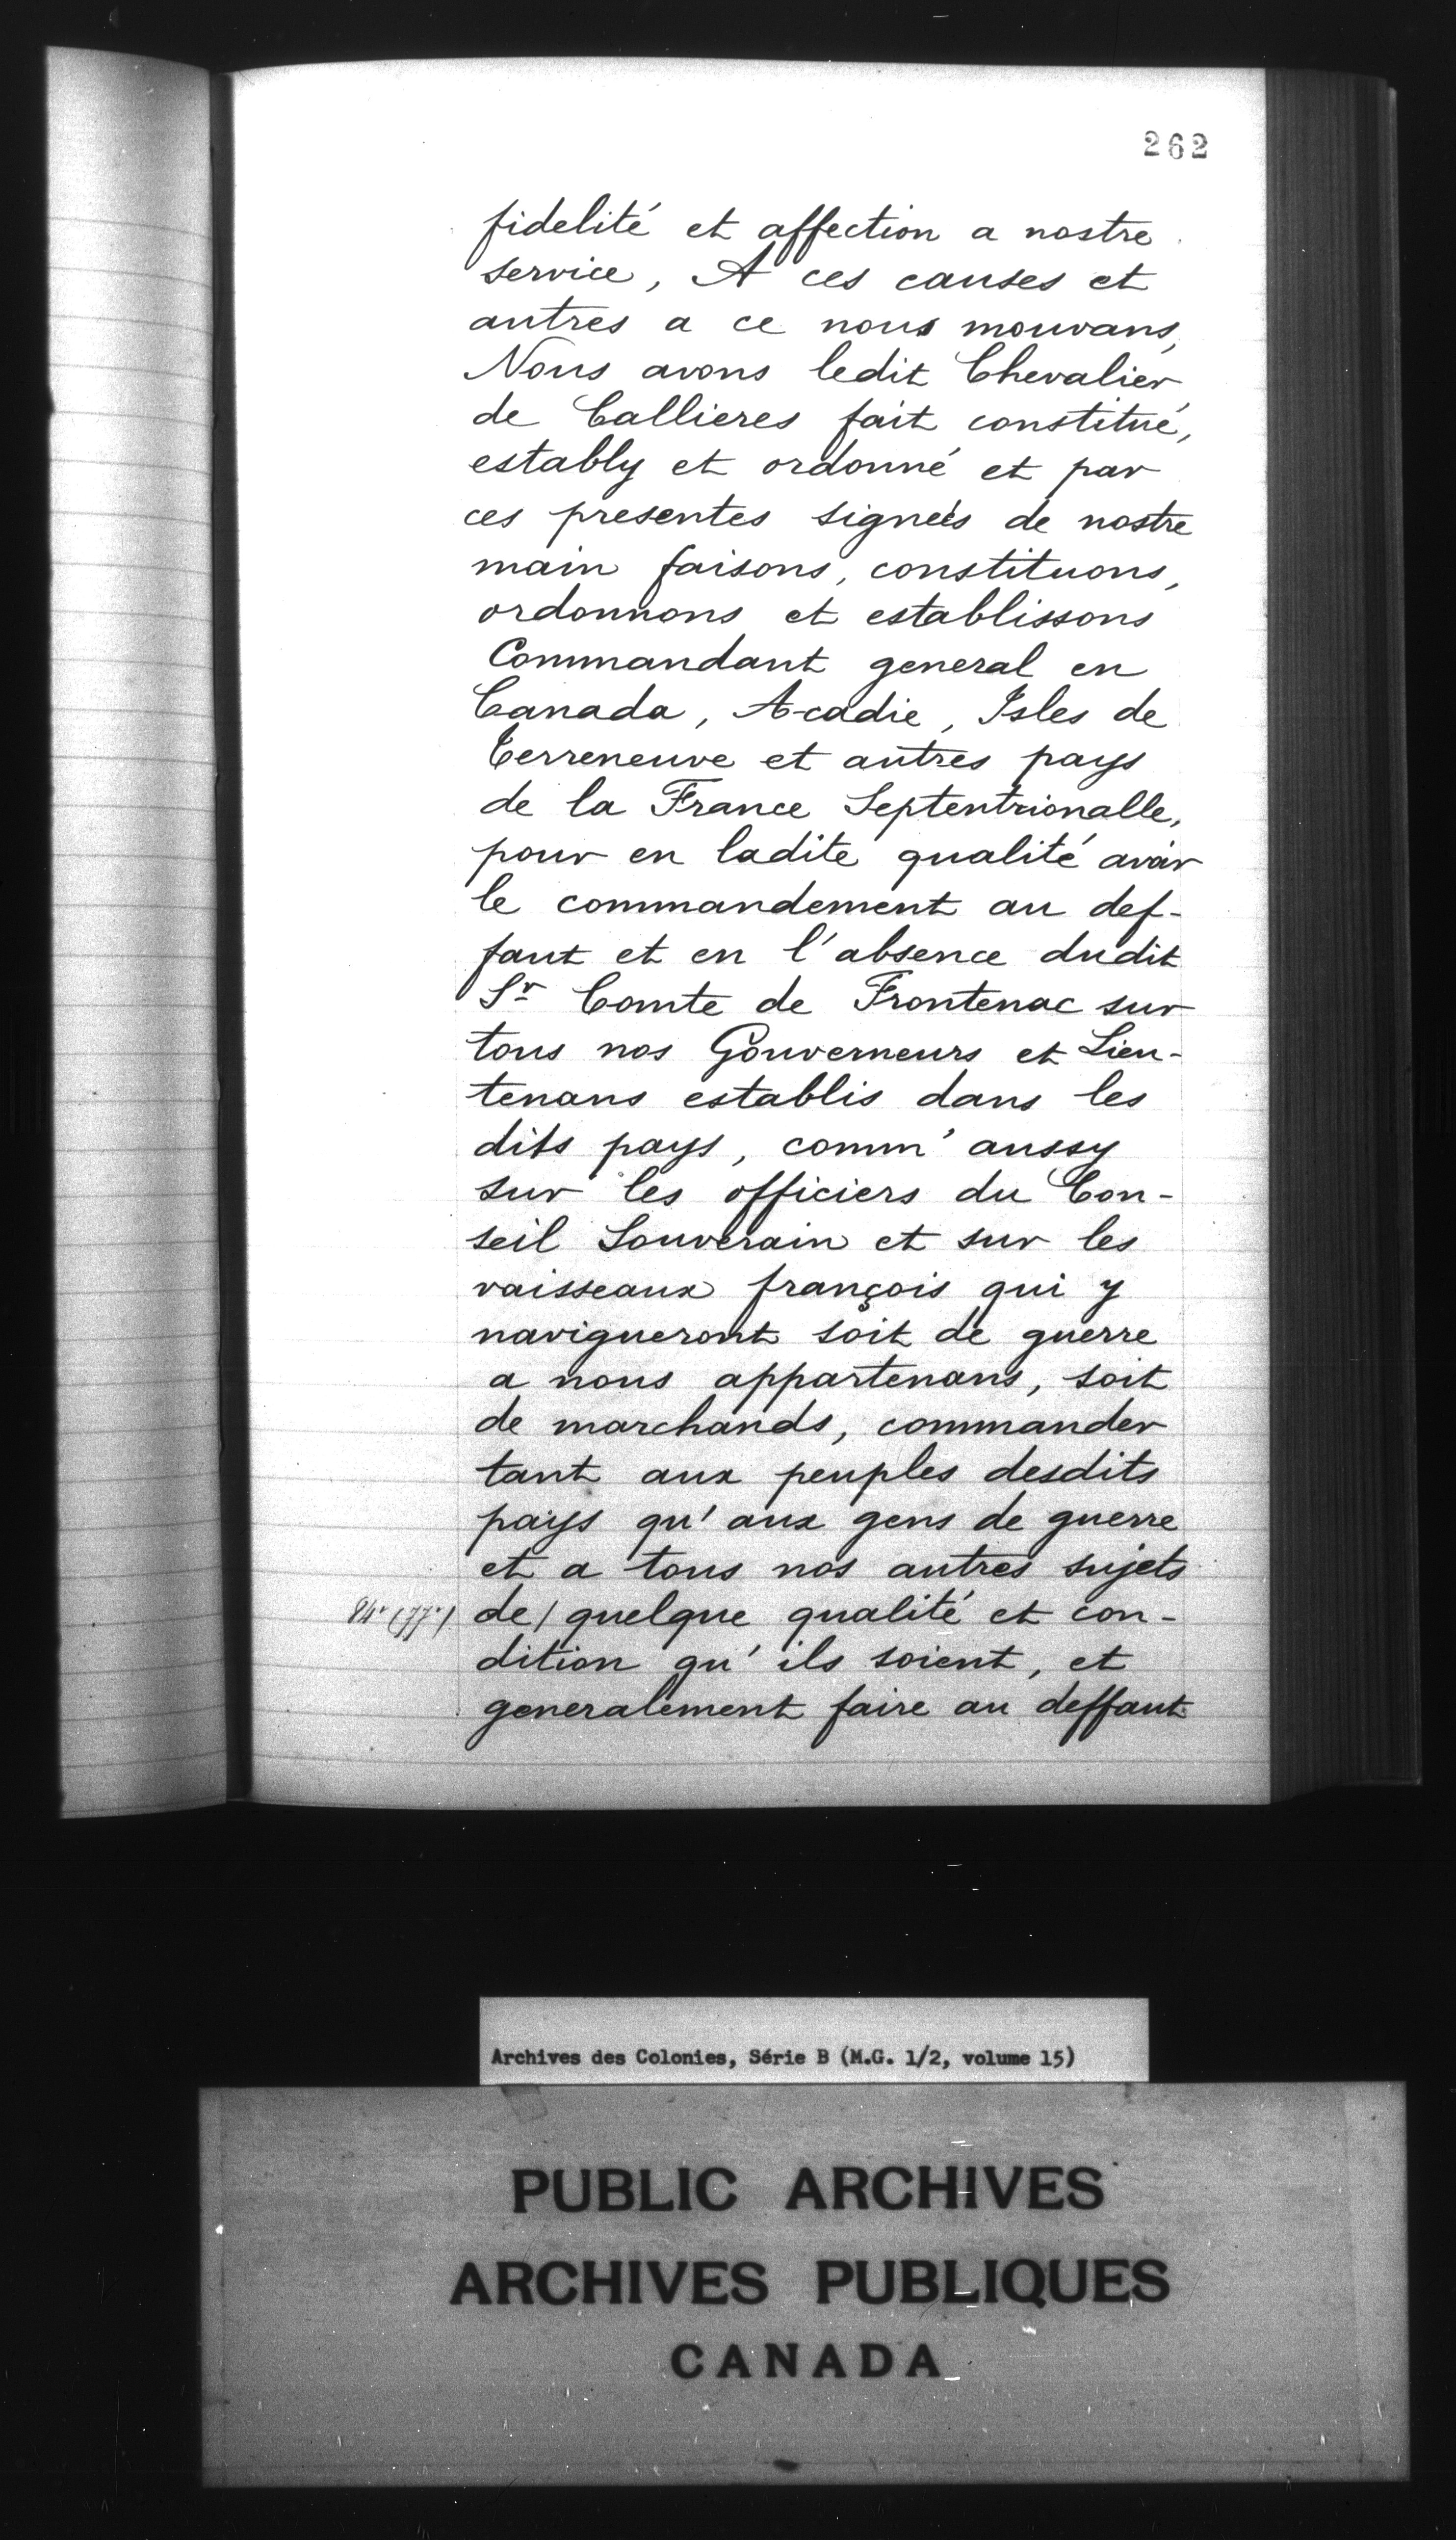 262
fidelité et affection a nostre
service, A ces causes et
autres a ce nous mouvans,
Nous avons ledit Chevalier
de Callieres fait constitué,
estably et ordonné et par
ces presentes signeés de nostre
main faisons, constituons,
ordonnons et establissons
Commandant general en
Canada, Acadie, Isles de
Terreneuve et autres pays
de la France Septentrionalle,
pour en ladite qualité avoir
le commandement au def-
faut et en l'absence dudit
Sr Comte de Frontenac sur
tous nos Gouverneurs et Lieu-
tenans establis dans les
dits pays, comm' aussy
sur les officiers du Con-
seil Souverain et sur les
vaisseaux françois qui y
navigueront soit de guerre
a nous appartenans, soit
de marchands, commander
tant aux peuples desdits
pays qu'aux gens de guerre
et a tous nos autres sujets
de/quelque qualité et con-
dition qu'ils soient, et
generalement faire au deffaut
Archives des Colonies, Série B (M.G. 1/2, volume 15)
PUBLIC ARCHIVES
ARCHIVES PUBLIQUES
CANADA